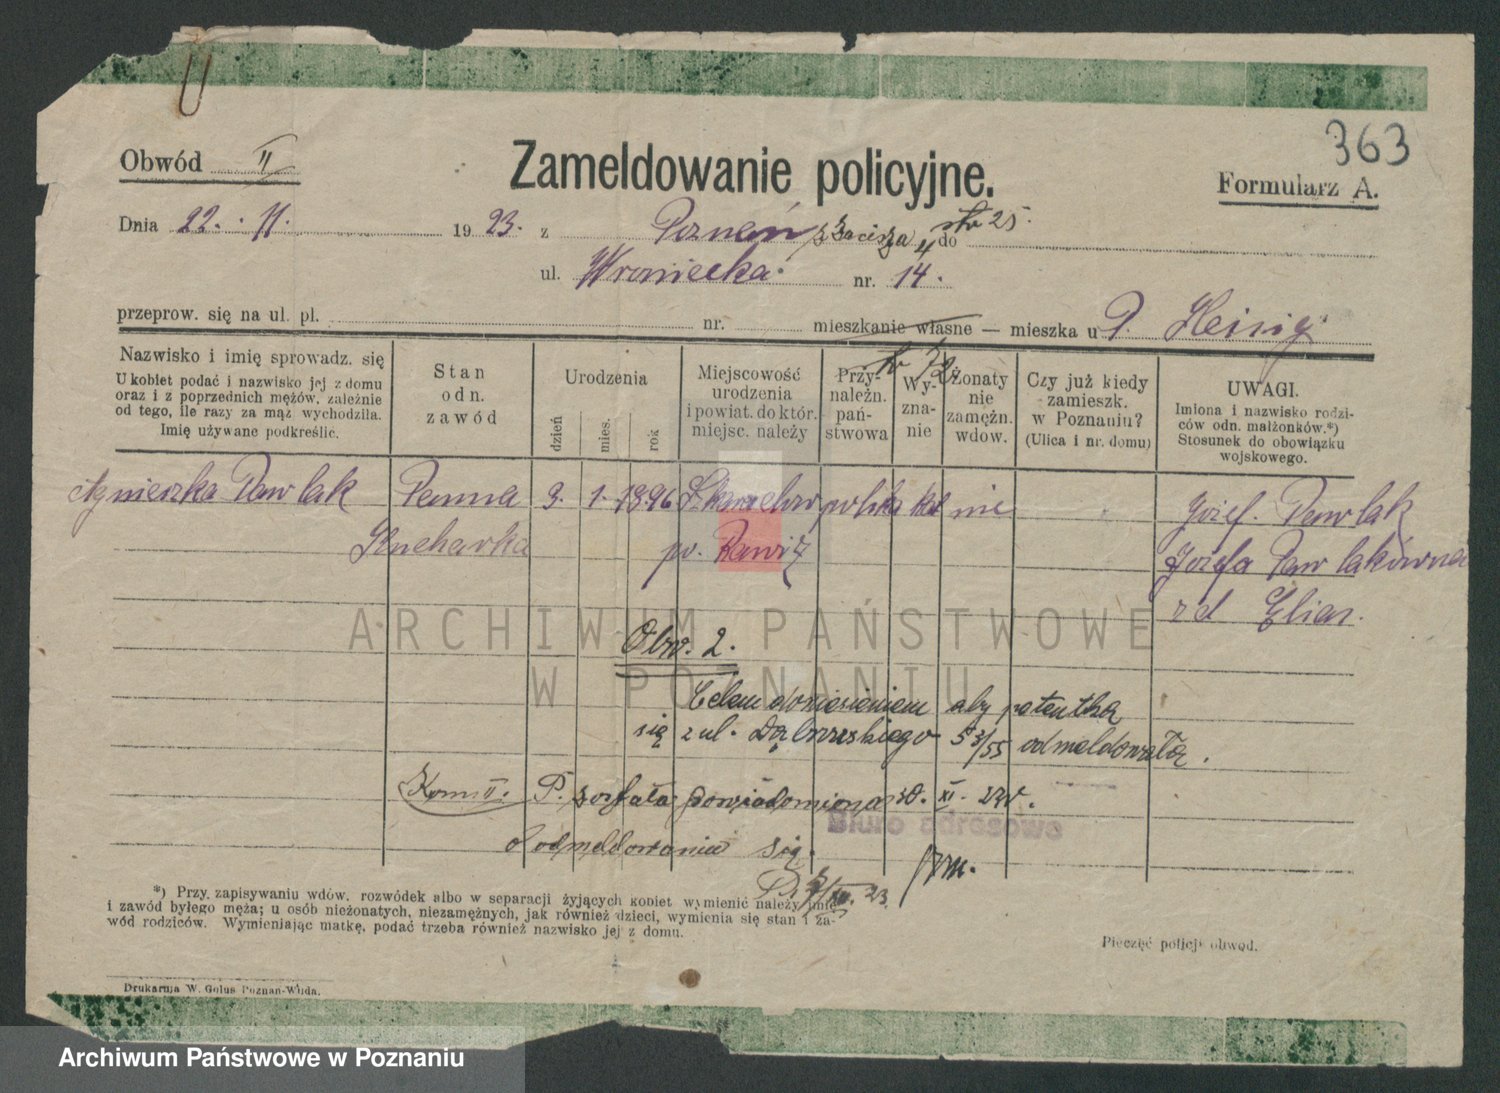 363
Obwód II
Zameldowanie policyjne.
Formularz A.
Dnia 22. 11. 1923. z Poznań z Zacisza 4 do
ul. Wroniecka. nr. 14.
przeprow. się na ul. pl. nr. mieszkanie własne — mieszka u P. Heinig
Nazwisko i imię sprowadz. się
U kobiet podać i nazwisko jej z domu
oraz i z poprzednich mężów, zależnie
od tego, ile razy za mąż wychodziła.
Imię używane podkreślić.
Stan
odn.
zawód
Urodzenia
dzień
mies.
rok
Miejscowość
urodzenia
i powiat. do któr.
miejsc. należy
Przy-
należn.
pań-
stwowa
Wy-
zna-
nie
Żonaty
nie
zamężn.
wdow.
Czy już kiedy
zamieszk.
w Poznaniu?
(Ulica i nr. domu)
UWAGI.
Imiona i nazwisko rodzi-
ców odn. małżonków.*)
Stosunek do obowiązku
wojskowego.
Agnieszka Pawlak Panna 9. 1. 1896 polska kat nie Józef. Pawlak
Kucharka pw. Rawicz Józefa Pawlakówna
zd Elias.
ARCHIWUM PAŃSTWOWE
W POZNANIU
Obw. 2.
Celem doniesieniem aby petentka
się z ul. Dąbrowskiego 53/55 odmeldowała.
Kom II. P. została powiadomiona 30. XI. 23r.
o odmeldowaniu się.
Biuro adresowe
*) Przy zapisywaniu wdów, rozwódek albo w separacji żyjących kobiet wymienić należy imię
i zawód byłego męża; u osób nieżonatych, niezamężnych, jak również dzieci, wymienia się stan i za-
wód rodziców. Wymieniając matkę, podać trzeba również nazwisko jej z domu.
Pieczęć policji obwod.
Drukarnia W. Golus Poznań-Wilda.
Archiwum Państwowe w Poznaniu